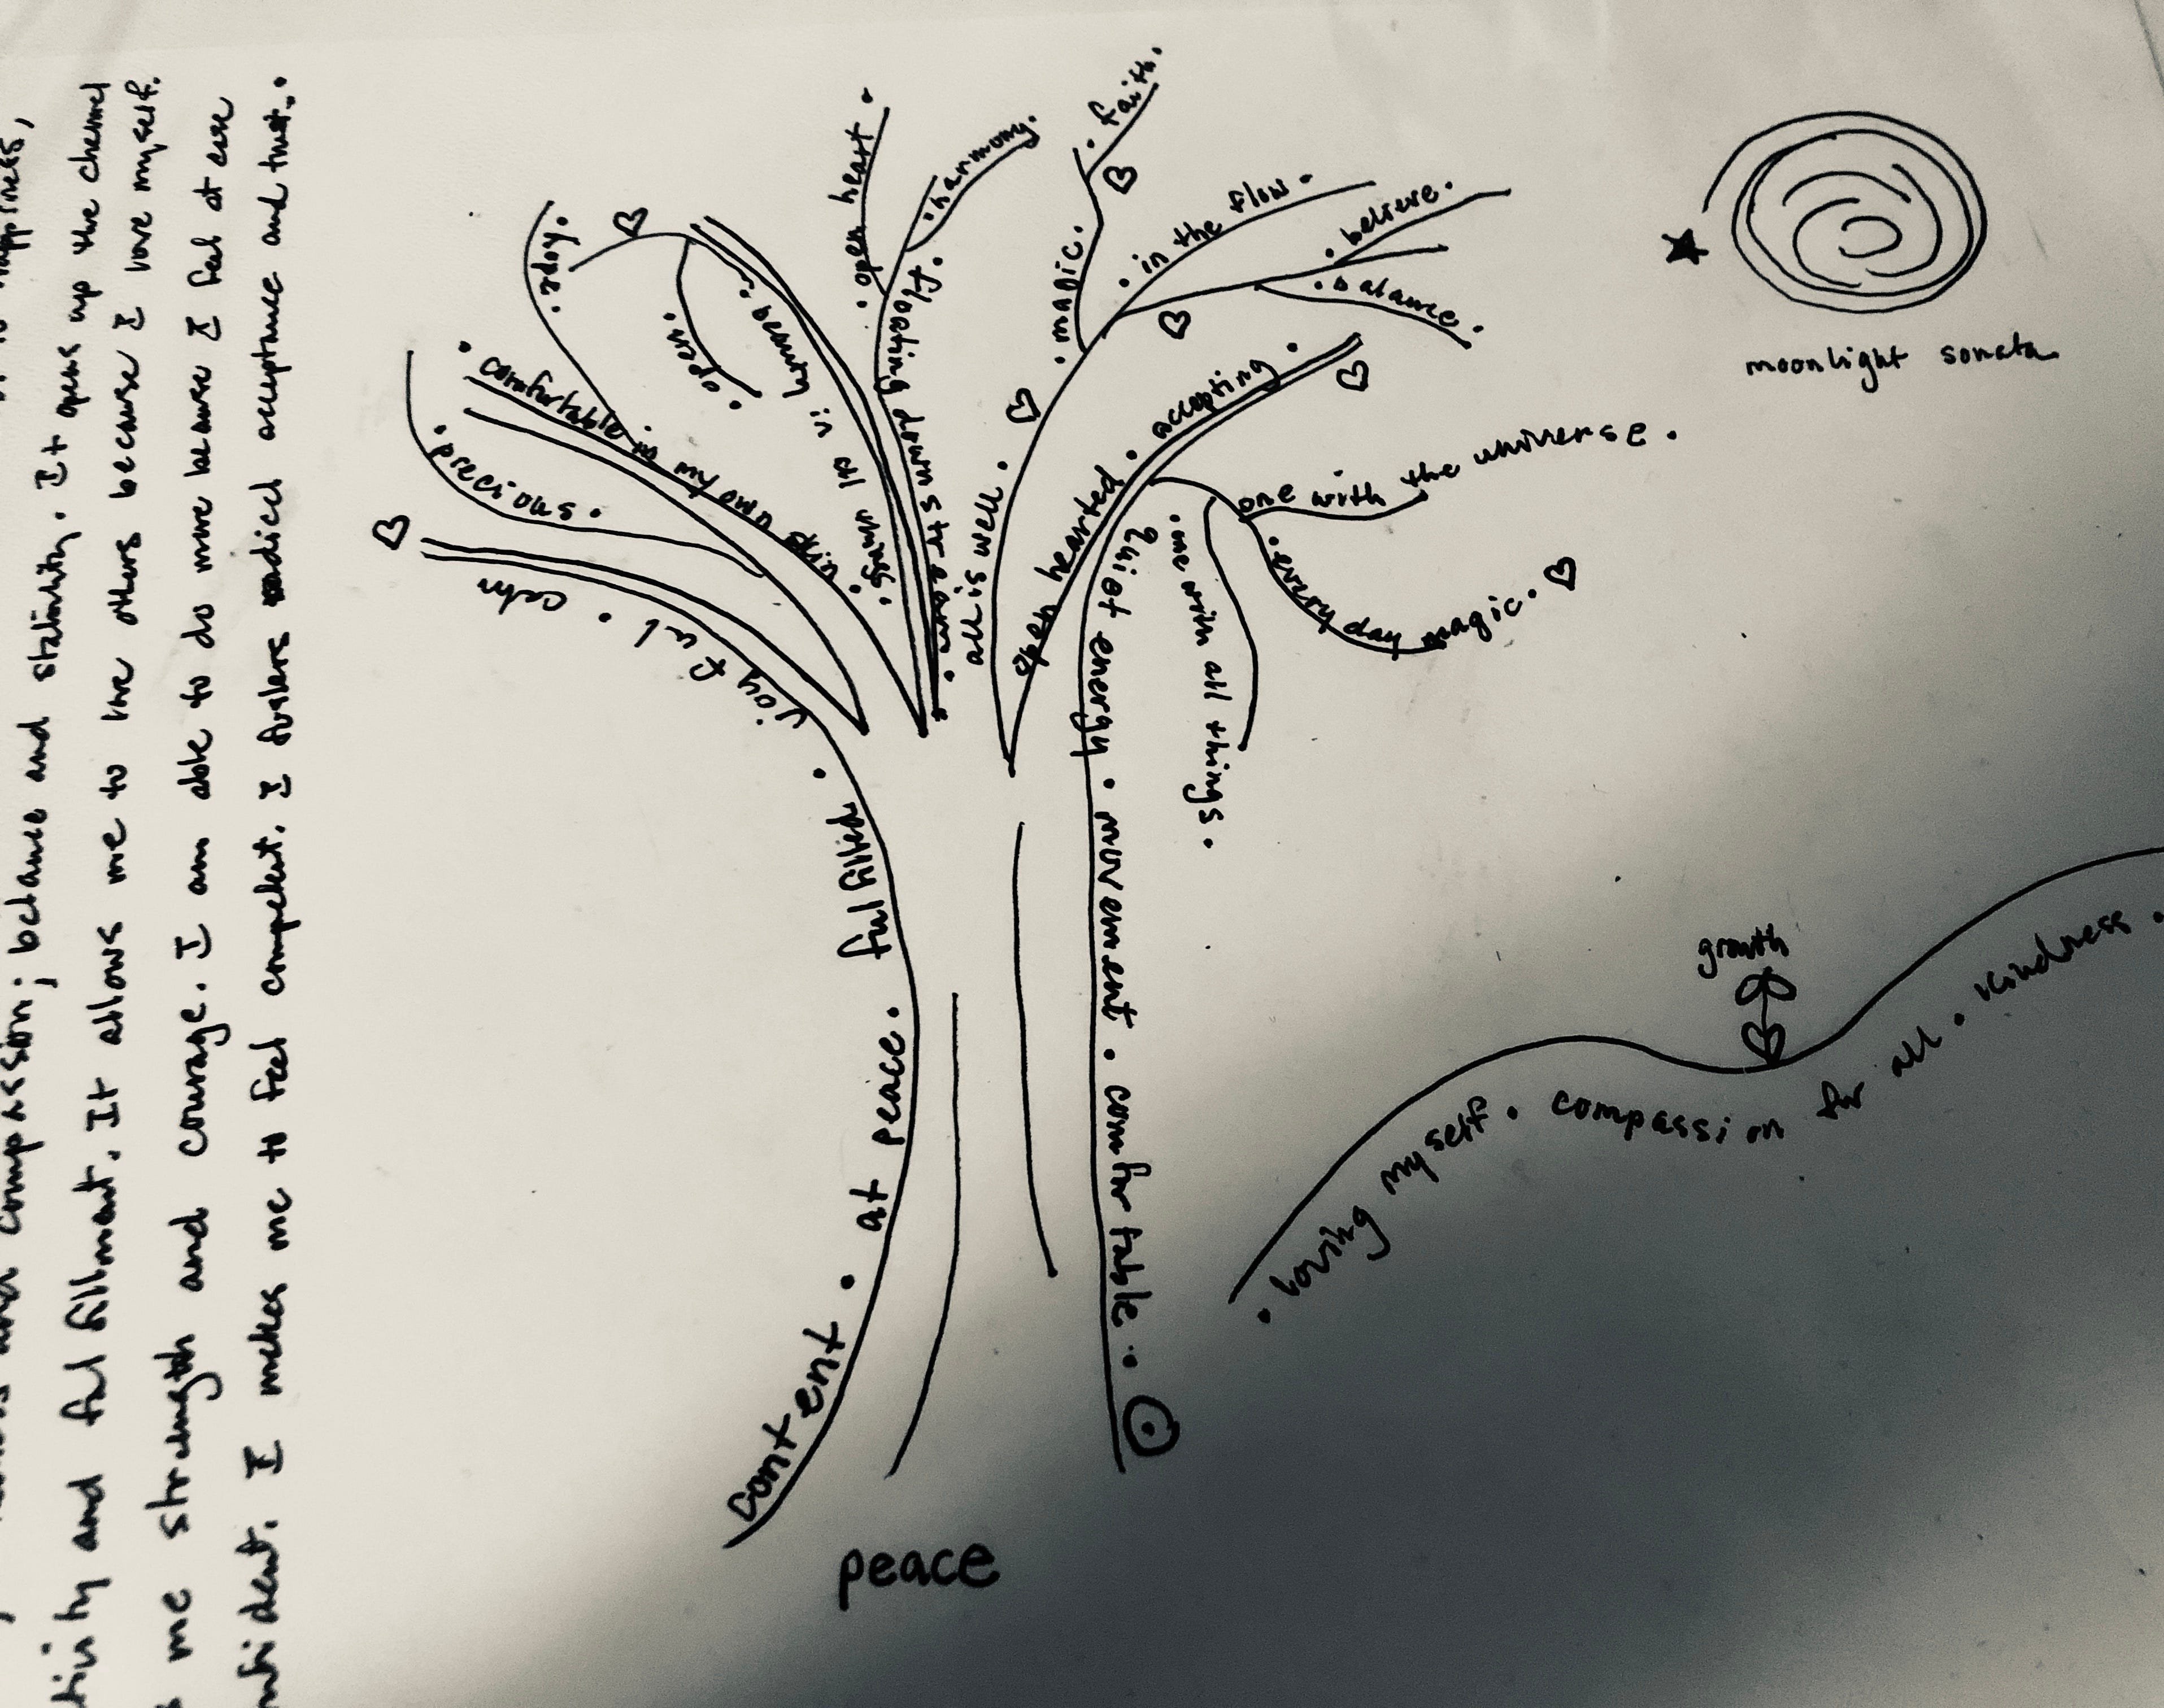 happiness,
compassion; balance and stability. It opens up the channel
and fulfillment. It allows me to love others because I love myself.
me strength and courage. I am able to do more because I feel at ease
I makes me to feel competent. I fosters radical acceptance and trust.
calm. joyful.
fulfilled
at peace.
content.
precious.
comfortable in my own skin.
hope.
open.
grounded in
human.
open heart.
harmony.
floating down stream.
all is well.
magic.
faith.
in the flow.
believe.
balance.
open hearted. accepting.
quiet energy. movement. comfortable.
one with all things.
one with the universe.
every day magic.
moonlight sonata
growth
loving myself. compassion for all. kindness.
peace